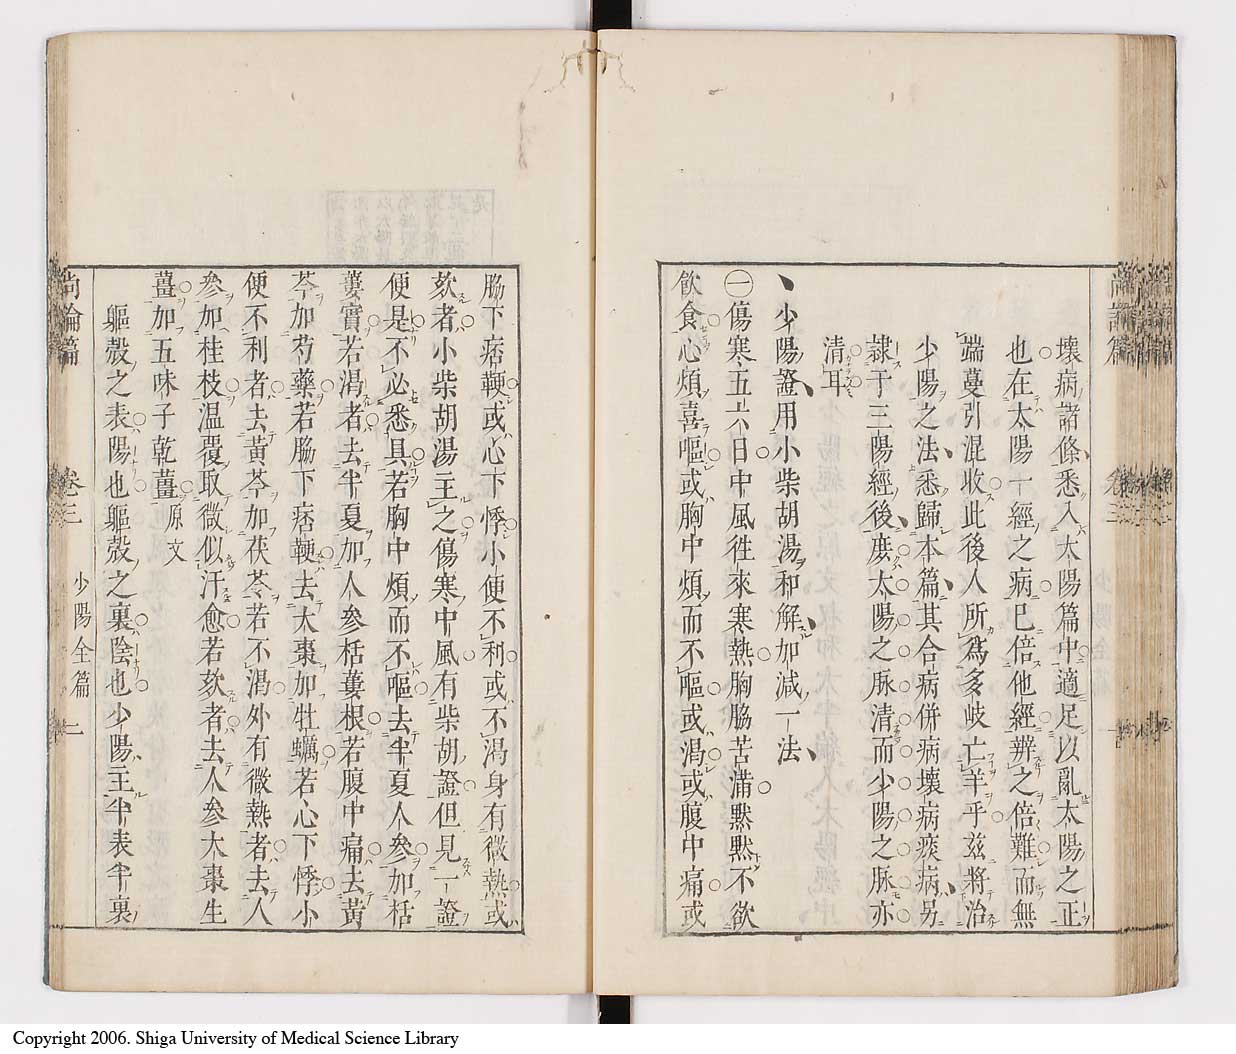 壞病諸條悉入太陽篇中適足以亂太陽之正
也在太陽一經之病已倍他經辨之倍難而無
端蔓引混收此後人所爲多岐亡羊乎玆將治
少陽之法悉歸本篇其合病併病壞病痰病另
隷于三陽經後庻太陽之脉清而少陽之脉亦
清耳
少陽證用小柴胡湯和解加減一法
一傷寒五六日中風徃來寒熱胸脇苦滿黙黙不欲
飲食心煩喜嘔或胸中煩而不嘔或渴或腹中痛或
脇下痞鞕或心下悸小便不利或不渴身有微熱或
欬者小柴胡湯主之傷寒中風有柴胡證但見一證
便是不必悉具若胸中煩而不嘔去半夏人參加栝
蔞實若渴者去半夏加人參栝蔞根若腹中痛去黃
芩加芍藥若脇下痞鞕去大棗加牡蠣若心下悸小
便不利者去黃芩加茯苓若不渴外有微熱者去人
參加桂枝温覆取微似汗愈若欬者去人參大棗生
薑加五味子乾薑原文
軀殼之表陽也軀殼之裏陰也少陽主半表半裏
尚論篇 卷三 少陽全篇 二
Copyright 2006. Shiga University of Medical Science Library